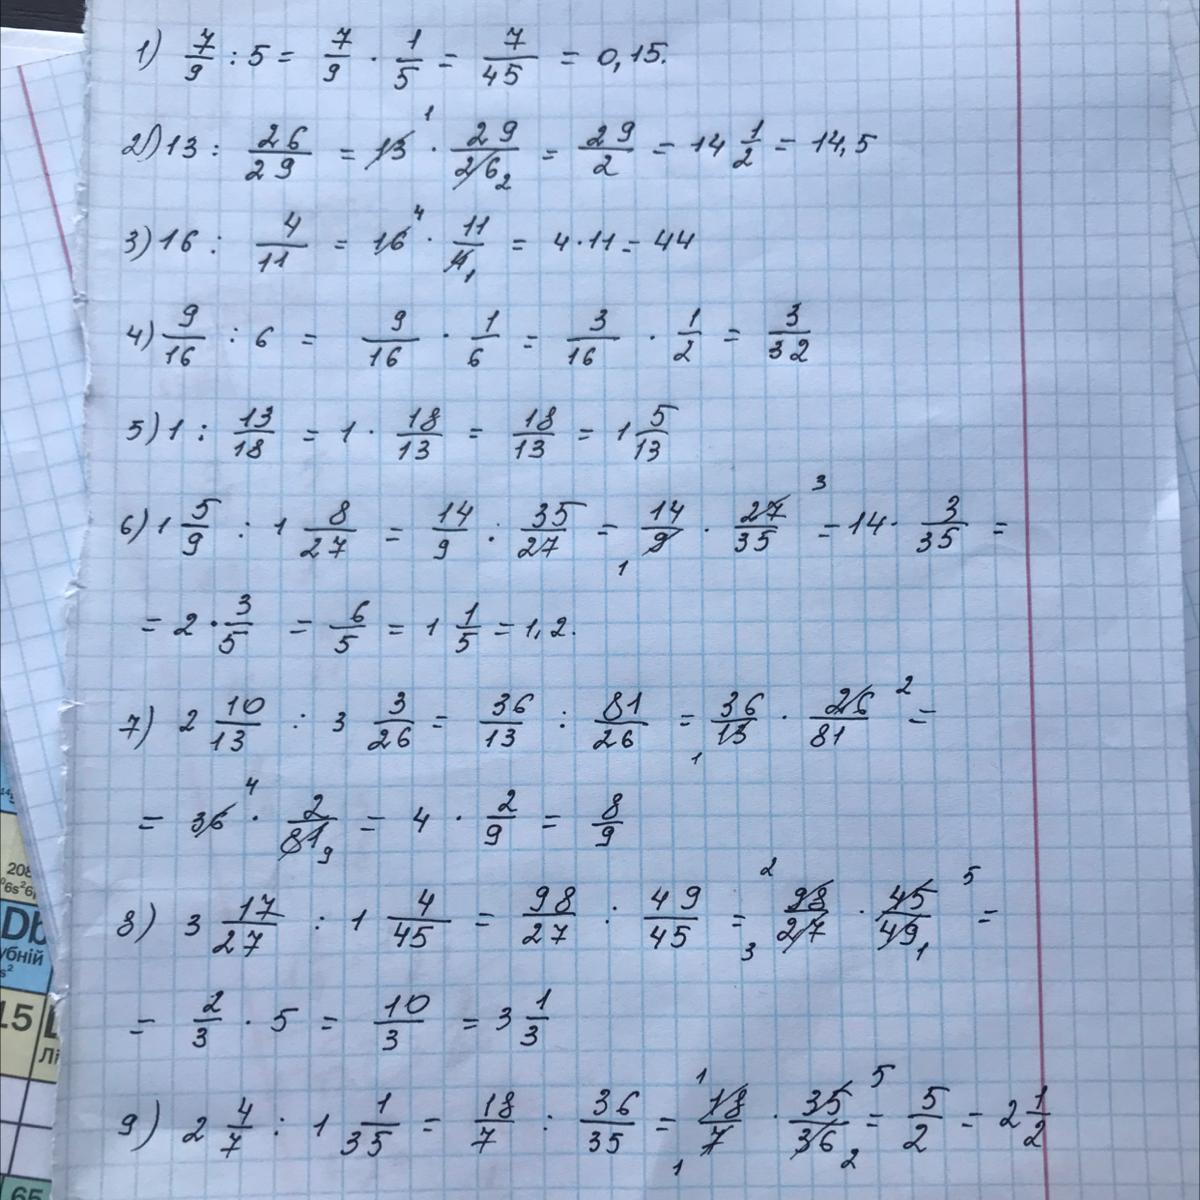 1) 7/9 : 5 = 7/9 · 1/5 = 7/45 = 0,15.
2) 13 : 26/29 = 13 1 · 29/26 2 = 29/2 = 14 1/2 = 14,5
3) 16 : 4/11 = 16 4 · 11/4 1 = 4·11 = 44
4) 9/16 : 6 = 9/16 · 1/6 = 3/16 · 1/2 = 3/32
5) 1 : 13/18 = 1 · 18/13 = 18/13 = 1 5/13
6) 1 5/9 : 1 8/27 = 14/9 · 35/27 = 14/9 1 · 27/35 3 = 14 · 3/35 =
= 2 · 3/5 = 6/5 = 1 1/5 = 1,2.
7) 2 10/13 : 3 3/26 = 36/13 : 81/26 = 36/13 1 · 26/81 2 =
= 36 4 · 2/81 9 = 4 · 2/9 = 8/9
8) 3 17/27 : 1 4/45 = 98/27 : 49/45 = 2 98/27 3 · 45/49 5 1 =
= 2/3 · 5 = 10/3 = 3 1/3
9) 2 4/7 : 1 1/35 = 18/7 : 36/35 = 1 18/7 1 · 35/36 5 2 = 5/2 = 2 1/2
208
6s²6
Db
убній
s²
15
Лі
65